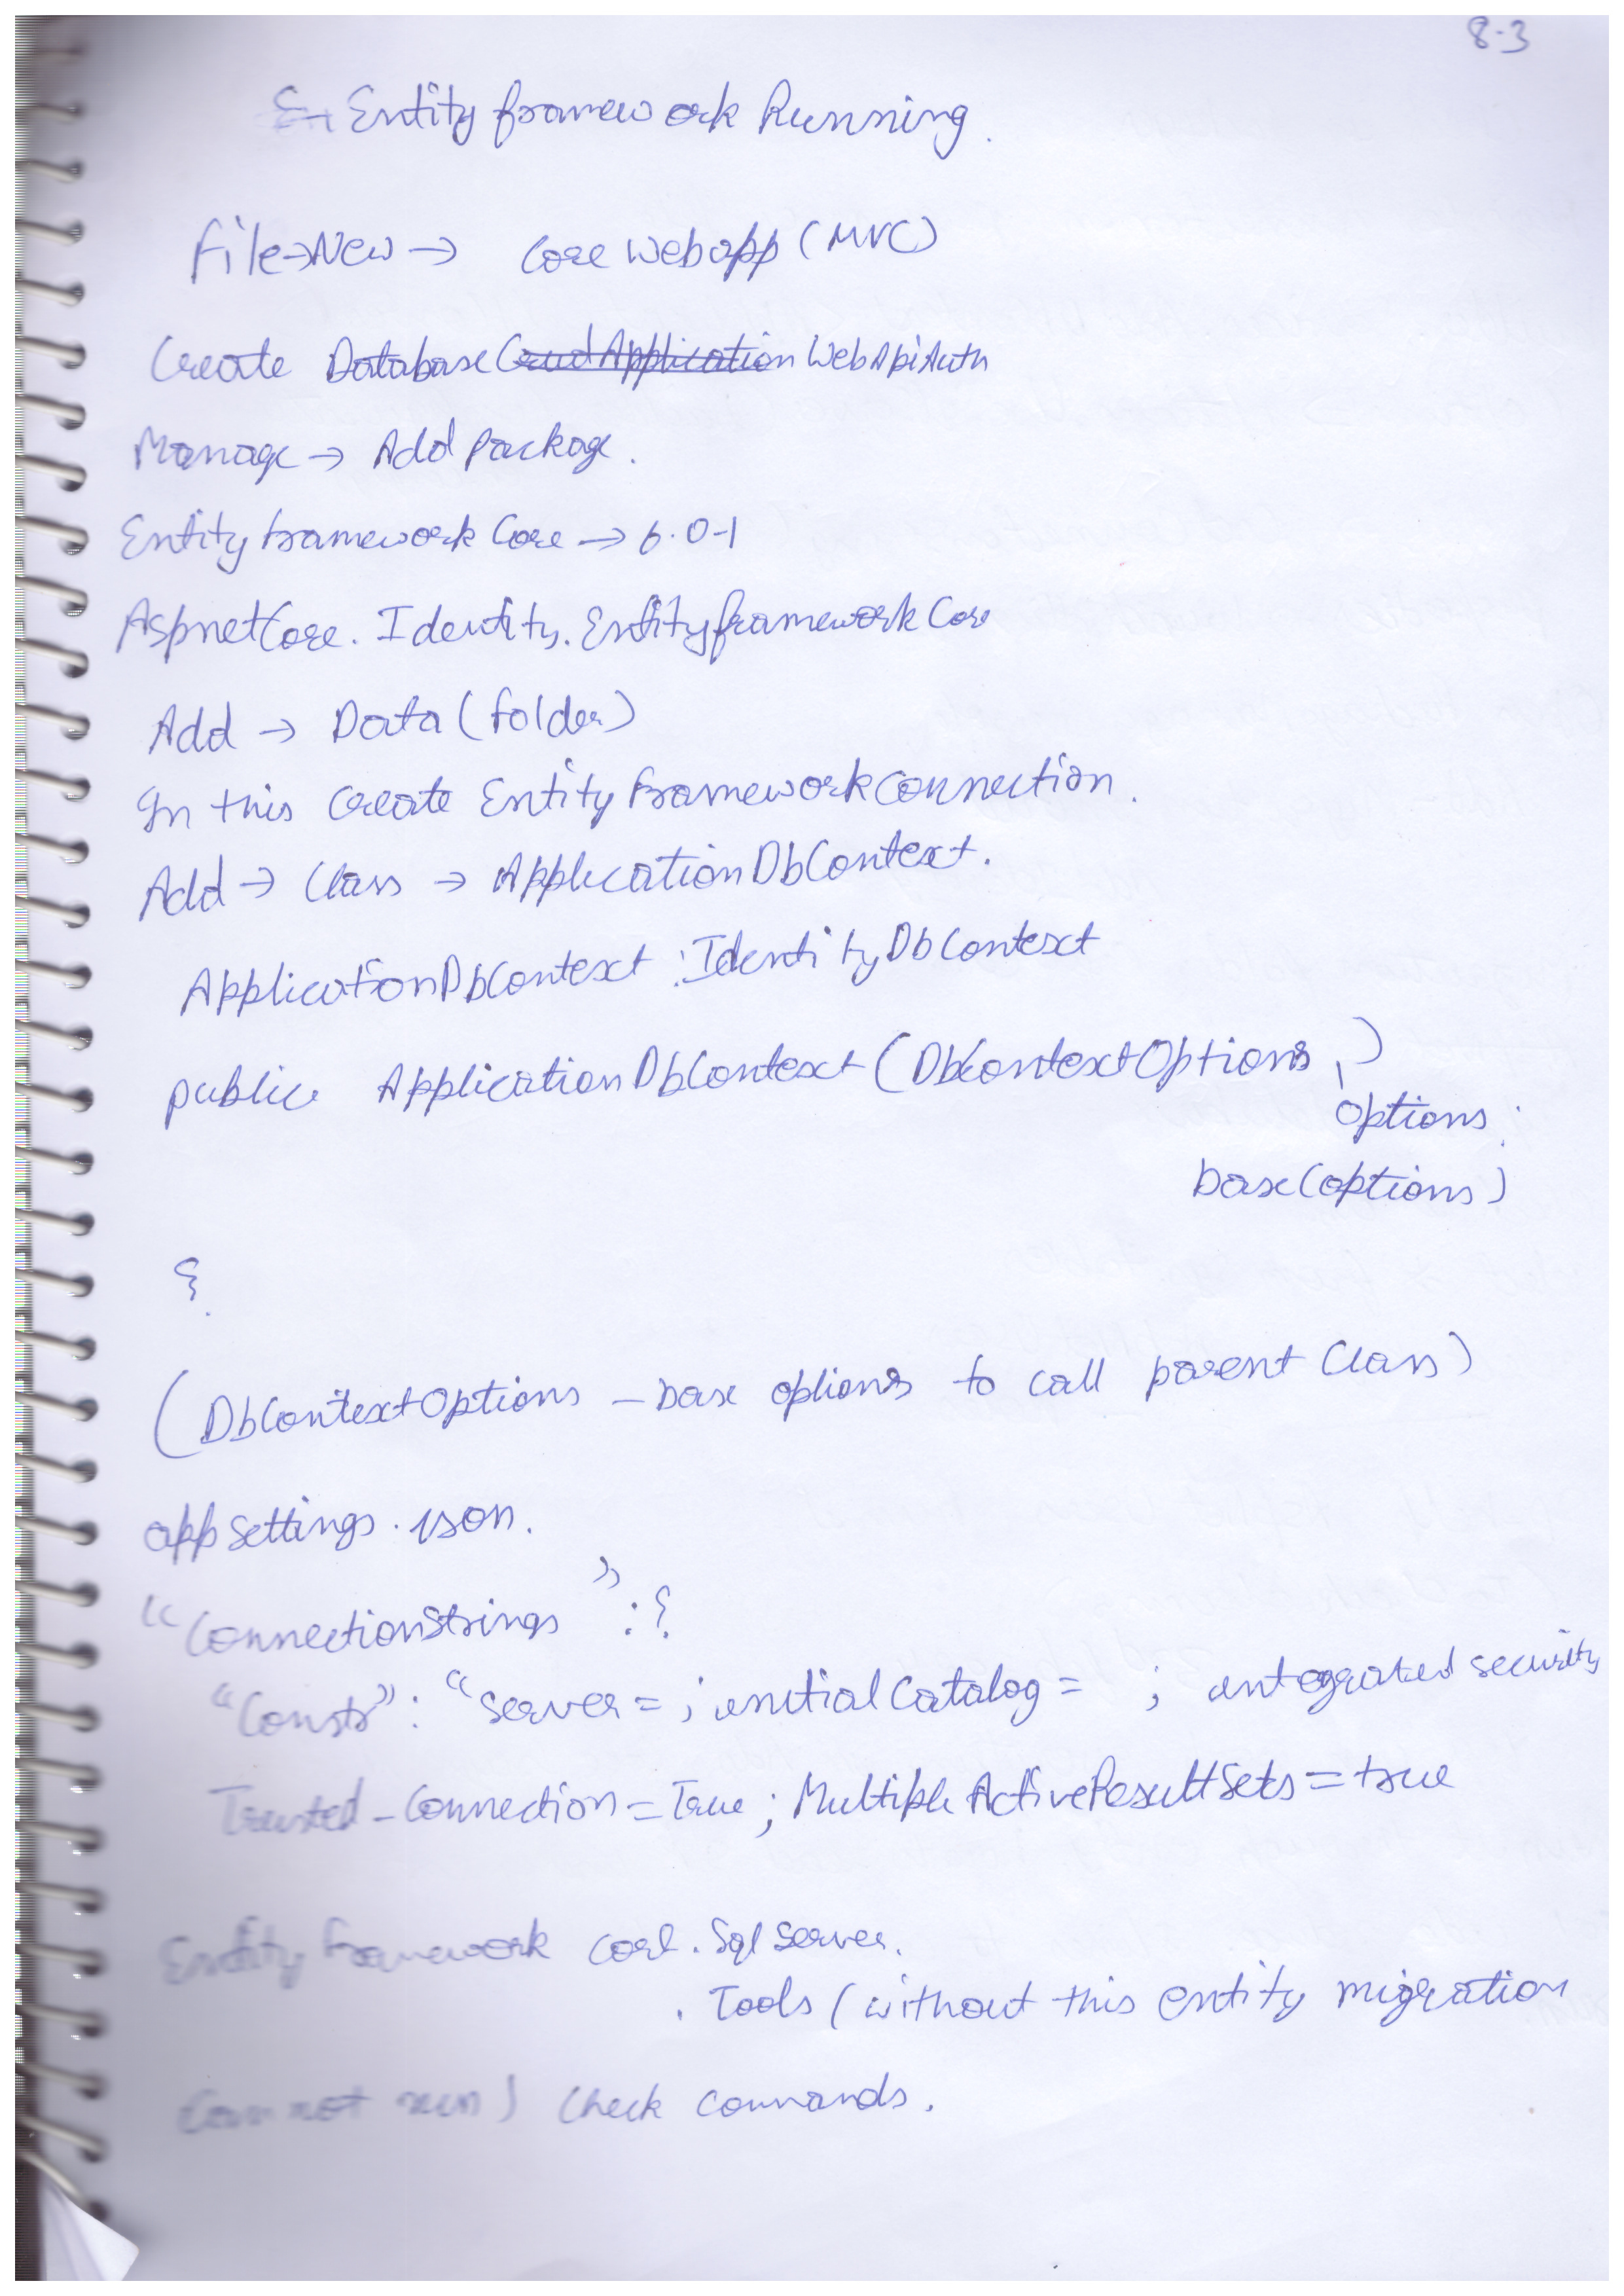 8.3
Entity framework Running.
File→New → Core Web app (MVC)
Create Database CrudApplication WebApiAuth
Manage → Add Package.
Entity framework Core → 6.0-1
AspnetCore. Identity. Entityframework Core
Add → Data (folder)
In this Create Entity framework connection.
Add → Class → ApplicationDbContext.
ApplicationDbContext : IdentityDbContext
public ApplicationDbContext (DbContextOptions )
options :
base(options)
{
(DbContextOptions - base options to call parent Class)
app settings.json.
"ConnectionStrings" : {
"Constr" : "Server = ; initial Catalog = ; integrated security
Trusted-Connection = True ; MultipleActiveResultSets = true
Entity framework core. Sql Server.
. Tools (without this entity migration
can not run) Check commands.